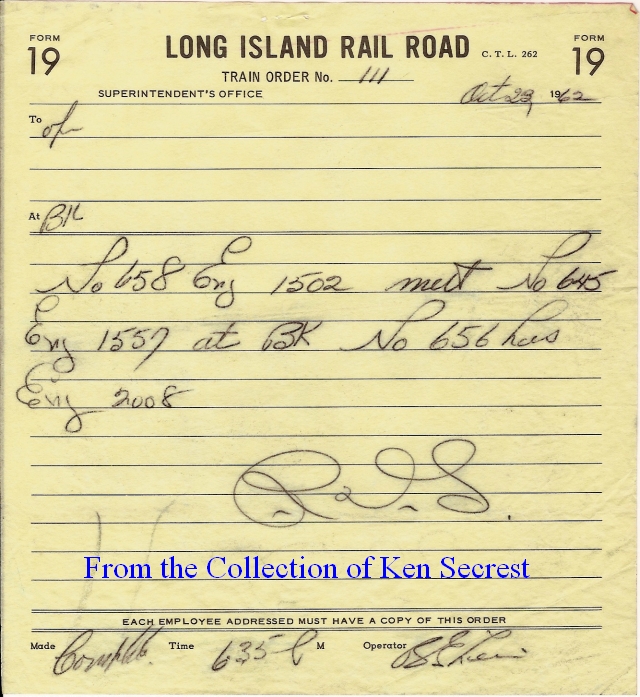 FORM 19
LONG ISLAND RAIL ROAD C. T. L. 262
FORM 19
TRAIN ORDER No. 111
SUPERINTENDENT'S OFFICE Oct 23, 1962
To opr
At BK
No 658 Eng 1502 meet No 645
Eng 1557 at BK No 656 has
Eng 2008
From the Collection of Ken Secrest
EACH EMPLOYEE ADDRESSED MUST HAVE A COPY OF THIS ORDER
Made Complete. Time 635 P M Operator